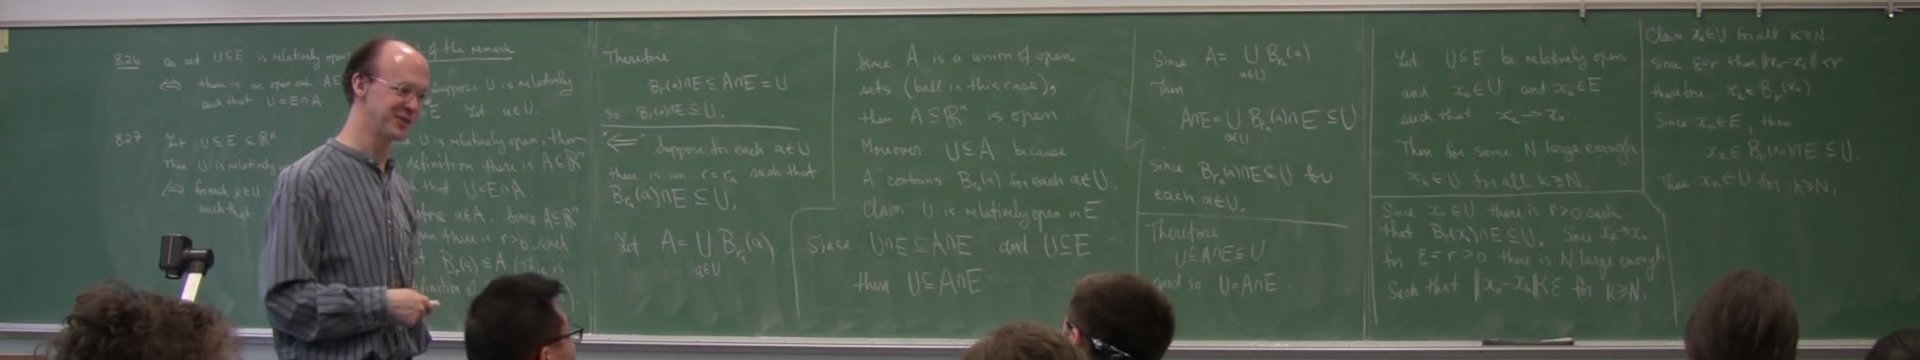 8.26 an set U⊆E is relatively open
⇔ there is an open set A⊆
such that U=E∩A
8.27 Let U⊆E⊆ℝⁿ
Then U is relatively
⇔ for each a∈U
such that
of the remark
suppose U is relatively
E Let a∈U.
U is relatively open, then
definition there is A⊆ℝⁿ
that U=E∩A
a∈A. Since A⊆ℝⁿ
there is r>0 such
Bᵣ(a)⊆A (This is
Therefore
Bᵣ(a)∩E⊆A∩E=U
so Bᵣ(a)∩E⊆U.
⇐ Suppose for each a∈U
there is an r=rₐ such that
B_{rₐ}(a)∩E⊆U.
Let A=⋃_{a∈U} B_{rₐ}(a)
Since A is a union of open
sets (ball in this case),
then A⊆ℝⁿ is open
Moreover U⊆A because
A contains B_{rₐ}(a) for each a∈U.
Claim U is relatively open in E
Since U∩E⊆A∩E and U⊆E
then U⊆A∩E
Since A=⋃_{a∈U} B_{rₐ}(a)
Then
A∩E=⋃_{a∈U} B_{rₐ}(a)∩E⊆U
Since B_{rₐ}(a)∩E⊆U for
each a∈U.
Therefore
U⊆A∩E⊆U
and so U=A∩E
Let U⊆E be relatively open
and x₀∈U and xₖ∈E
such that xₖ→x₀.
Then for some N large enough
xₖ∈U for all k≥N.
Since x₀∈U there is r>0 such
that Bᵣ(x₀)∩E⊆U. Since xₖ→x₀
for ε=r>0 there is N large enough
Such that ‖xₖ-x₀‖<ε for k≥N.
Claim xₖ∈U for all k≥N.
Since ε=r then ‖xₖ-x₀‖<r
therefore xₖ∈Bᵣ(x₀)
Since xₖ∈E, then
xₖ∈Bᵣ(x₀)∩E⊆U.
Thus xₖ∈U for k≥N,